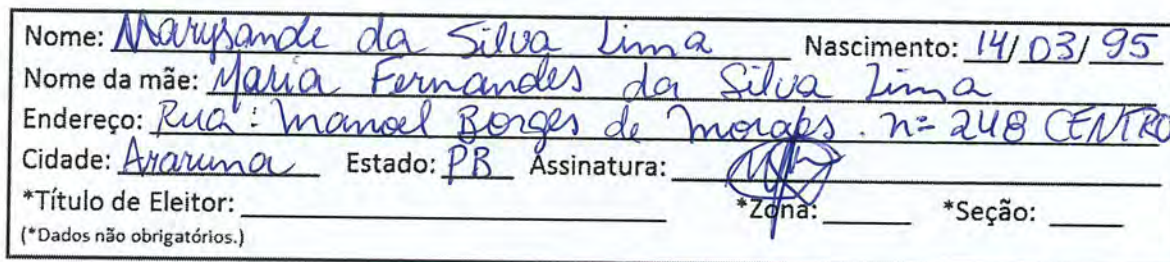 Nome: Marysande da Silva Lima Nascimento: 14/03/95
Nome da mãe: Maria Fernandes da Silva Lima
Endereço: Rua: Manoel Borges de Moraes. nº 248 CENTRO
Cidade: Araruna Estado: PB Assinatura:
*Título de Eleitor: *Zona: *Seção:
(*Dados não obrigatórios.)